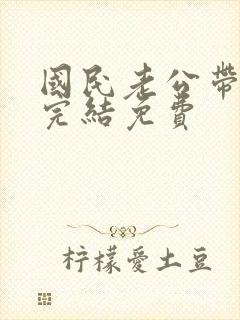 國民老公帶
完結免費
柠檬愛土豆